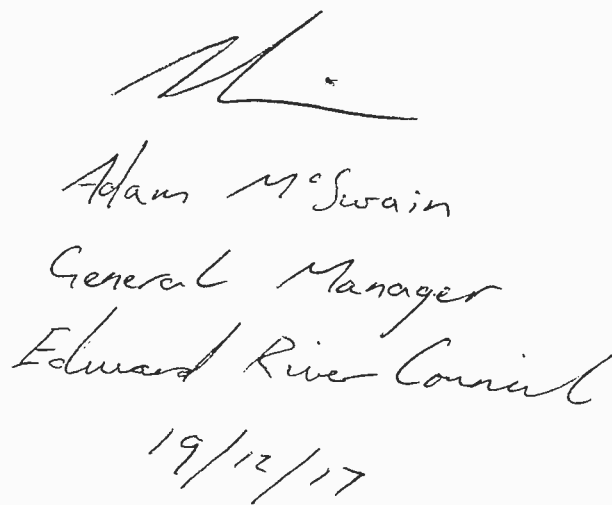 Adam McSwain
General Manager
Edward River Council
19/12/17